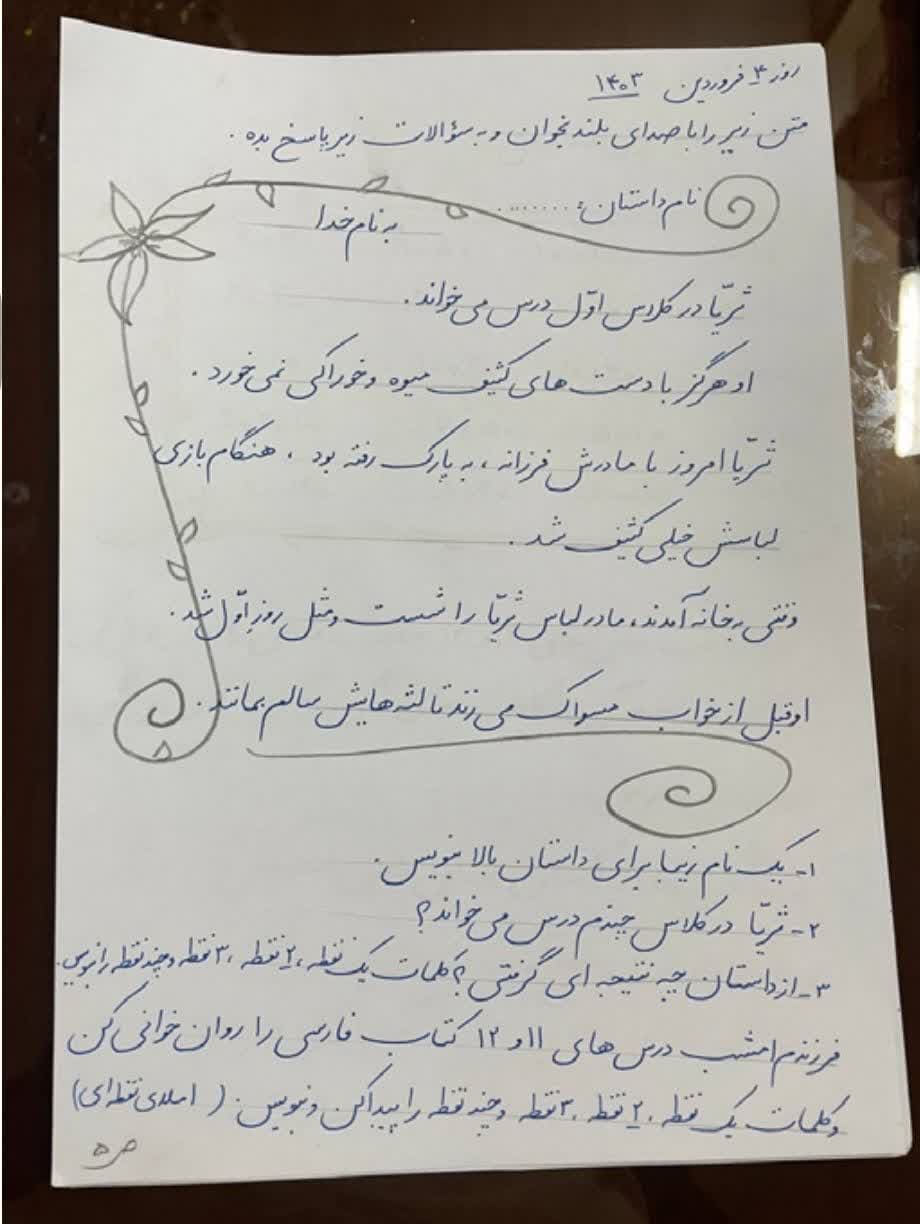 روز ۴ فروردین ۱۴۰۳
متن زیر را با صدای بلند بخوان و به سؤالات زیر پاسخ بده .
نام داستان: ........
به نام خدا
ثریّا در کلاس اوّل درس می خواند .
او هرگز با دست های کثیف میوه و خوراکی نمی خورد .
ثریّا امروز با مادرش فرزانه ، به پارک رفته بود . هنگام بازی
لباسش خیلی کثیف شد .
وقتی به خانه آمدند، مادر لباس ثریّا را شست و مثل روزِ اوّل شد .
او قبل از خواب مسواک می زند تا لثه هایش سالم بمانند .
۱- یک نام زیبا برای داستان بالا بنویس .
۲- ثریّا در کلاس چندم درس می خواند؟
۳- از داستان چه نتیجه ای گرفتی؟ کلمات یک نقطه ، ۲ نقطه ، ۳ نقطه و چند نقطه را بنویس .
فرزندم امشب درس های ۱۱ و ۱۲ کتاب فارسی را روان خوانی کن
و کلمات یک نقطه . ۲ نقطه . ۳ نقطه و چند نقطه را پیدا کن و بنویس . ( املای نقطه ای)
ص ۵